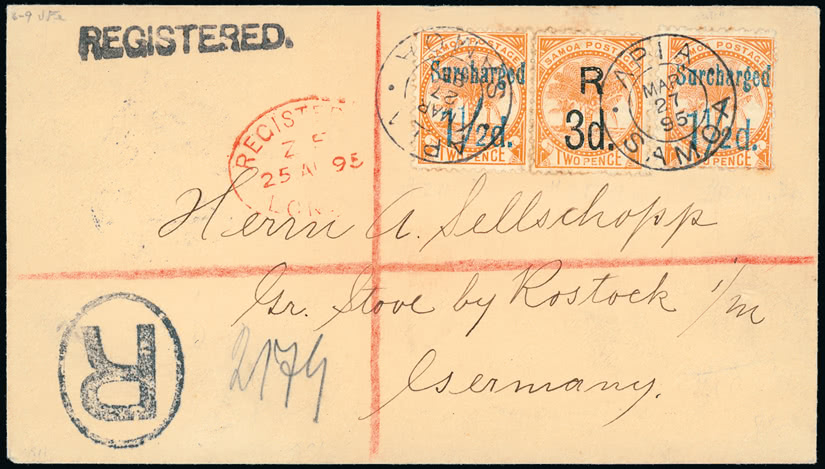 REGISTERED.
SAMOA POSTAGE
Surcharged
1½d.
TWO PENCE
SAMOA POSTAGE
R
3d.
TWO PENCE
SAMOA POSTAGE
Surcharged
1½d.
TWO PENCE
APIA
MAR
27
95
SAMOA
APIA
MAR
27
95
SAMOA
REGISTERE
25 AP 95
LON
Herrn A. Sellschopp
Gr. Stove by Rostock i/m
Germany.
R
2174